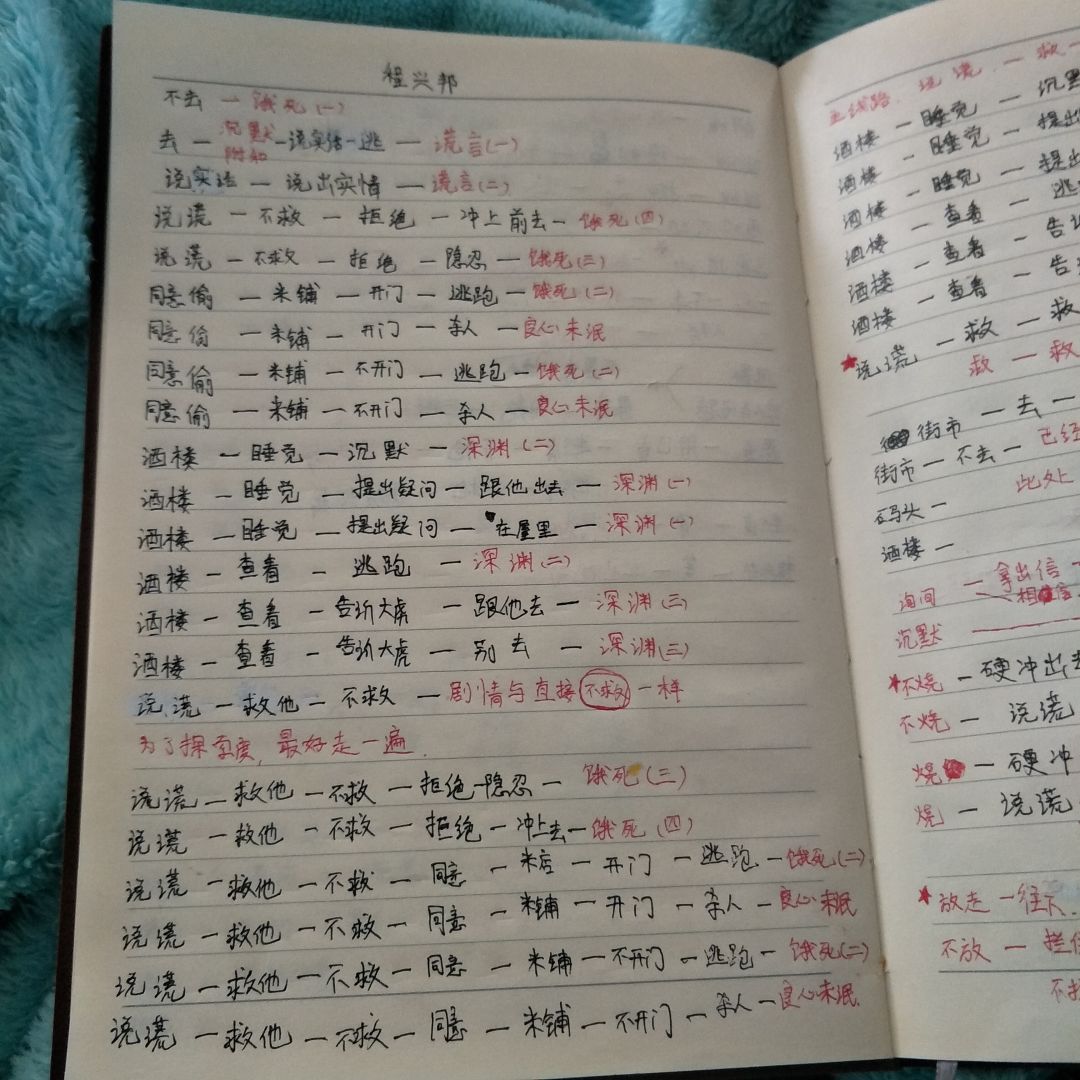 程兴邦
不去 — 饿死(一)
去 — 沉默 附和 — 说实话 — 逃 — 谎言(一)
说实话 — 说出实情 — 谎言(二)
说谎 — 不救 — 拒绝 — 冲上前去 — 饿死(四)
说谎 — 不救 — 拒绝 — 隐忍 — 饿死(三)
同意偷 — 米铺 — 开门 — 逃跑 — 饿死(二)
同意偷 — 米铺 — 开门 — 杀人 — 良心未泯
同意偷 — 米铺 — 不开门 — 逃跑 — 饿死(二)
同意偷 — 米铺 — 不开门 — 杀人 — 良心未泯
酒楼 — 睡觉 — 沉默 — 深渊(二)
酒楼 — 睡觉 — 提出疑问 — 跟他出去 — 深渊(一)
酒楼 — 睡觉 — 提出疑问 — 在屋里 — 深渊(一)
酒楼 — 查看 — 逃跑 — 深渊(二)
酒楼 — 查看 — 告诉大虎 — 跟他去 — 深渊(三)
酒楼 — 查看 — 告诉大虎 — 别去 — 深渊(三)
说谎 — 救他 — 不救 — 剧情与直接不救一样
为了探索度,最好走一遍.
说谎 — 救他 — 不救 — 拒绝 — 隐忍 — 饿死(三)
说谎 — 救他 — 不救 — 拒绝 — 冲上去 — 饿死(四)
说谎 — 救他 — 不救 — 同意 — 米店 — 开门 — 逃跑 — 饿死(二)
说谎 — 救他 — 不救 — 同意 — 米铺 — 开门 — 杀人 — 良心未泯
说谎 — 救他 — 不救 — 同意 — 米铺 — 不开门 — 逃跑 — 饿死(二)
说谎 — 救他 — 不救 — 同意 — 米铺 — 不开门 — 杀人 — 良心未泯
主线路:说谎 — 救 —
酒楼 — 睡觉 — 沉默
酒楼 — 睡觉 — 提出
酒楼 — 睡觉 — 提出
酒楼 — 查看 — 逃
酒楼 — 查看 — 告诉
酒楼 — 查看 — 告
★说谎 — 救 — 救
救 — 救
街市 — 去 —
街市 — 不去 — 已经
此处
码头 —
酒楼 —
询问 — 拿出信
相信
沉默 —
★不烧 — 硬冲出去
不烧 — 说谎
烧 — 硬冲
烧 — 说谎
★放走 — 往下
不放 — 拦
不